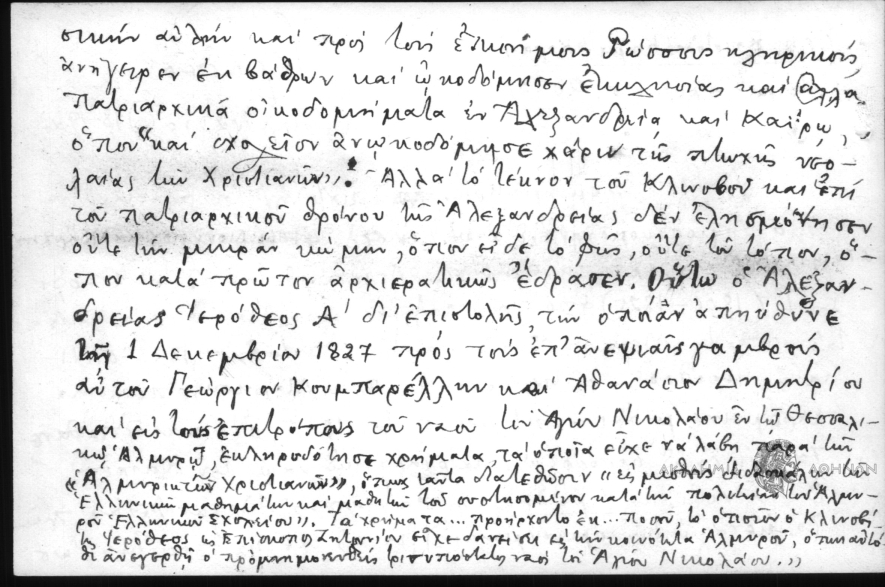 σικήν αὐλήν καί πρός τούς ἐπισήμους Ρώσσους κληρικούς
ἀνήγειρεν ἐκ βάθρων καί ὠκοδόμησεν ἐκκλησίας καί ἄλλα
πατριαρχικά οἰκοδομήματα ἐν Ἀλεξανδρείᾳ καί Καΐρῳ,
ὅπου "καί σχολεῖον ἀνῳκοδόμησε χάριν τῆς πτωχῆς νεο-
λαίας τῶν Χριστιανῶν". Ἀλλά τό τέκνον τοῦ Κλινοβοῦ καί ἐπί
τοῦ πατριαρχικοῦ θρόνου τῆς Ἀλεξανδρείας δέν ἐλησμόνησεν
οὔτε τήν μικράν κώμην, ὅπου εἶδε τό φῶς, οὔτε τόν τόπον, ὅ-
που κατά πρῶτον ἀρχιερατικῶς ἔδρασεν. Οὕτω ὁ Ἀλεξαν-
δρείας Ἱερόθεος Α' δι' ἐπιστολῆς, τήν ὁποίαν ἀπηύθυνε
τῇ 1 Δεκεμβρίου 1827 πρός τούς ἐπ' ἀνεψιαῖς γαμβρούς
αὐτοῦ Γεώργιον Κουμπαρέλλην καί Ἀθανάσιον Δημητρίου
καί εἰς τούς ἐπιτρόπους τοῦ ναοῦ τοῦ Ἁγίου Νικολάου ἐν τῷ Θεσσαλι-
κῷ Ἁλμυρῷ, ἐκληροδότησε χρήματα, τά ὁποῖα εἶχε νά λάβῃ παρά τῶν
«Ἁλμυριωτῶν Χριστιανῶν», ὅπως ταῦτα διατεθῶσιν «εἰς μισθούς διδασκάλων τῶν
Ἑλληνικῶν μαθημάτων καί μαθητῶν τοῦ συστησομένου κατά τήν πολιτείαν τοῦ Ἁλμυ-
ροῦ Ἑλληνικοῦ Σχολείου». Τά χρήματα... προήρχοντο ἐκ... ποσοῦ, τό ὁποῖον ὁ Κλινοβί-
της Ἱερόθεος ὡς Ἐπίσκοπος Ζητουνίου εἶχε δανείσει εἰς τήν κοινότητα Ἁλμυροῦ, ὅπως αὐτό-
θι ἀνεγερθῇ ὁ προμνημονευθείς τρισυπόστατος ναός τοῦ Ἁγίου Νικολάου.»
ΑΚΑΔΗΜΙΑ ΑΘΗΝΩΝ